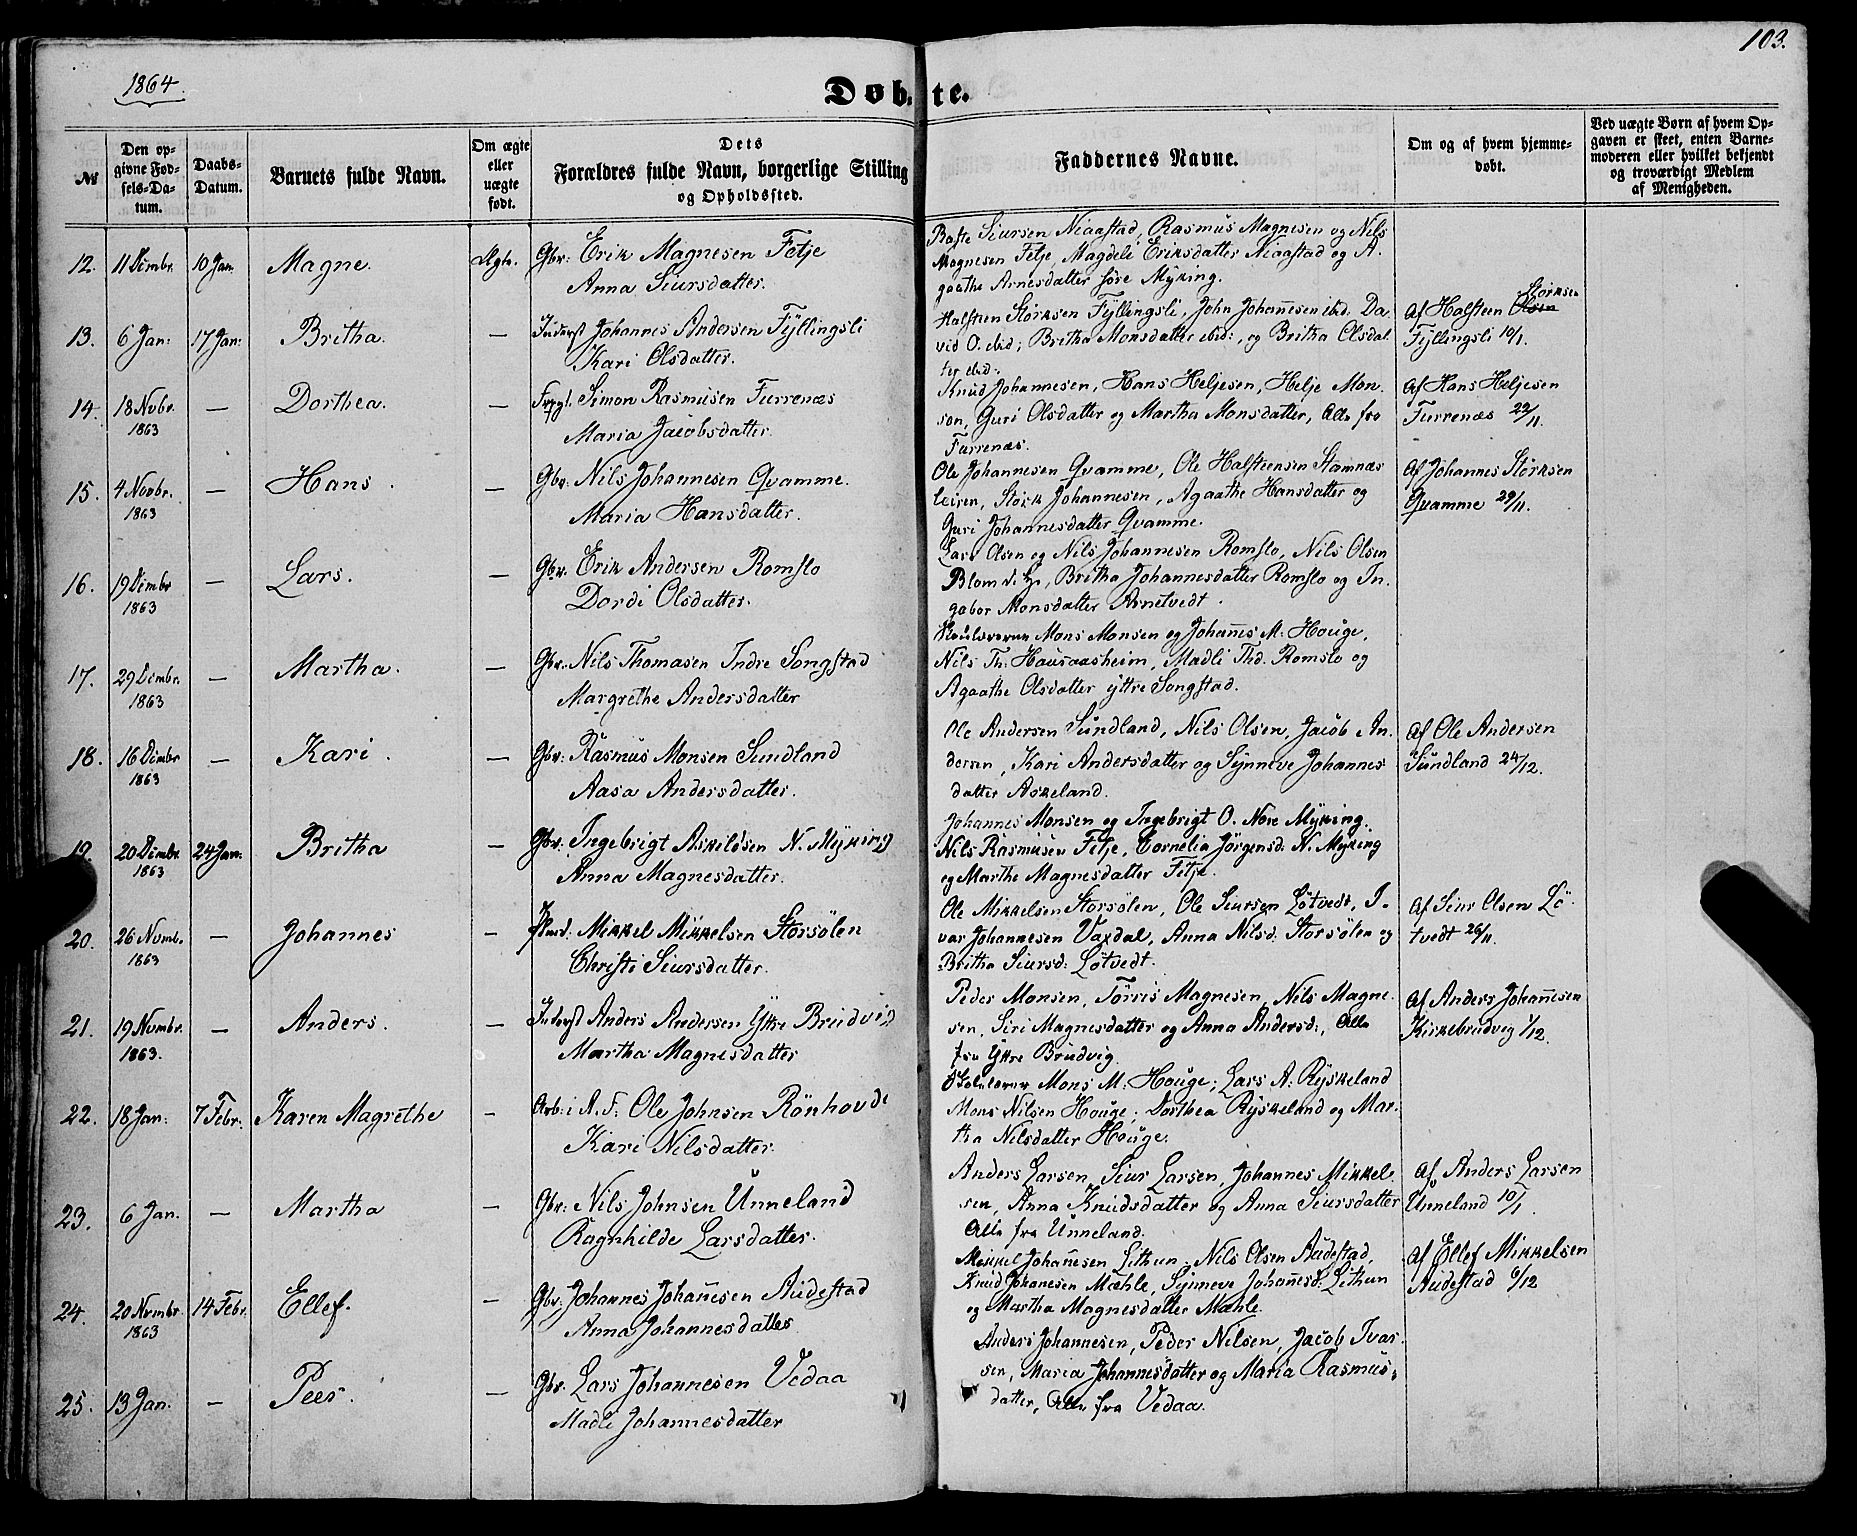 103.
1864.
Døbte.
№
Den opgivne Fødsels-Datum.
Daabs-Datum.
Barnets fulde Navn.
Om ægte eller uægte født.
Dets Forældres fulde Navn, borgerlige Stilling og Opholdssted.
Faddernes Navne.
Om og af hvem hjemmedøbt.
Ved uægte Børn af hvem Opgaven er skeet, enten Barnemoderen eller hvilket bekjendt og troværdigt Medlem af Menigheden.
12. 11 Dcmbr. 10 Jan. Magne. Ægte. Gbr: Erik Magnesen Fetje
Anna Siursdatter.
Baste Siursen Niaastad, Rasmus Magnesen og Nils
Magnesen Fetje, Magdeli Eriksdatter Niaastad og A.
gaathe Arnesdatter søre Myking.
13. 6 Jan: 17 Jan: Britha. — Inderst Johannes Andersen Fyllingsli
Kari Olsdatter.
Halsteen Størksen Fyllingsli, John Johannesen ibd. Da
vid O. ibid; Britha Monsdatter ibid:, og Britha Olsdat
ter ibd.
Af Halsteen Olsen Størksen
Fyllingsli 10/1.
14. 18 Novbr. 1863 — Dorthea. — Simon Rasmusen Furrenæs
Maria Jacobsdatter.
Knud Johannesen, Hans Heljesen, Helje Mon.
son, Guri Olsdatter og Martha Monsdatter, Alle fra
Furrenæs.
Af Hans Heljesen
Furrenæs 22/11.
15. 4 Novbr. 1863 — Hans. — Gbr. Nils Johannesen Qvamme.
Maria Hansdatter.
Ole Johannesen Qvamme, Ole Halsteensen Stamnæs
leiren, Størk Johannesen, Agaathe Hansdatter og
Guri Johannesdatter Qvamme.
Af Johannes Størksen
Qvamme 29/11.
16. 19 Dcmbr 1863 — Lars. — Gbr. Erik Andersen Romslo
Dordi Olsdatter.
Lars Olsen og Nils Johannesen Romslo, Nils Olsen
Blom, Britha Johannesdatter Romslo og In.
gebor Monsdatter Arnetvedt.
17. 29 Dcmbr. 1863 — Martha. — Gbr: Nils Thomasen Indre Songstad
Margrethe Andersdatter
Skolelærerne Mons Monsen og Johannes M. Houge,
Nils Th. Hausaasheim, Madli Thd. Romslo og
Agaathe Olsdatter yttre Songstad.
18. 16 Dcmbr 1863 — Kari. — Gbr: Rasmus Monsen Sundland
Aasa Andersdatter.
Ole Andersen Sundland, Nils Olsen, Jacob An.
dersen, Kari Andersdatter og Synneve Johannes
datter Askeland.
Af Ole Andersen
Sundland 24/12.
19. 20 Dcmbr. 1863 24 Jan: Britha — Gbr. Ingebrigt Askildsen N. Myking
Anna Magnesdatter.
Johannes Monsen og Ingebrigt O. Nore Myking.
Nils Rasmusen Fetje, Cornelia Jörgensd: N. Myking
og Marthe Magnesdatter Fetje.
20. 26 Nvmb. 1863 — Johannes — Mikkel Mikkelsen Storsölen
Christi Siursdatter.
Ole Mikkelsen Storsölen, Ole Siursen Lötvedt, I.
var Johannesen Vaxdal, Anna Nilsd: Storsölen og
Britha Siursd: Lötvedt.
Af Siur Olsen Lö
tvedt 26/11.
21. 19 Nvmbr. 1863. — Anders. — Inderst Anders Andersen Yttre Brudvig
Martha Magnesdatter
Peder Monsen, Törris Magnesen, Nils Magne.
sen, Siri Magnesdatter og Anna Andersd:, Alle
fra Yttre Brudvig.
Af Anders Johannesen
Kirkebrudvig 1/12.
22. 18 Jan: 7 Febr. Karen Magrethe — Arb: i A. F. Ole Johnsen Rönhovde
Kari Nilsdatter.
Skolelærer Mons M: Houge; Lars A: Ryskeland
Mons Nilsen Houge; Dorthea Ryskeland og Mar.
tha Nilsdatter Houge.
23. 6 Jan. — Martha — Gbr: Nils Johnsen Unneland
Ragnhilde Larsdatter.
Anders Larsen, Siur Larsen, Johannes Mikkel.
sen, Anna Knudsdatter og Anna Siursdatter
Alle fra Unneland.
Af Anders Larsen
Unneland 10/1.
24. 20 Nvmbr. 1863 14 Febr. Ellef. — Gbr. Johannes Johannesen Audestad
Anna Johannesdatter
Mikkel Johannesen Lithun, Nils Olsen Audestad,
Knud Johanesen Mæhle, Synneve Johannesd: Lithun
og Martha Magnesdatter Mæhle.
Af Ellef Mikkelsen
Audestad 6/12
25. 13 Jan. — Peer. — Gbr. Lars Johannesen Vedaa
Madli Johannesdatter
Anders Johannesen, Peder Nilsen, Jacob Ivar.
sen, Maria Johannesdatter og Maria Rasmus.
datter, Alle fra Vedaa.